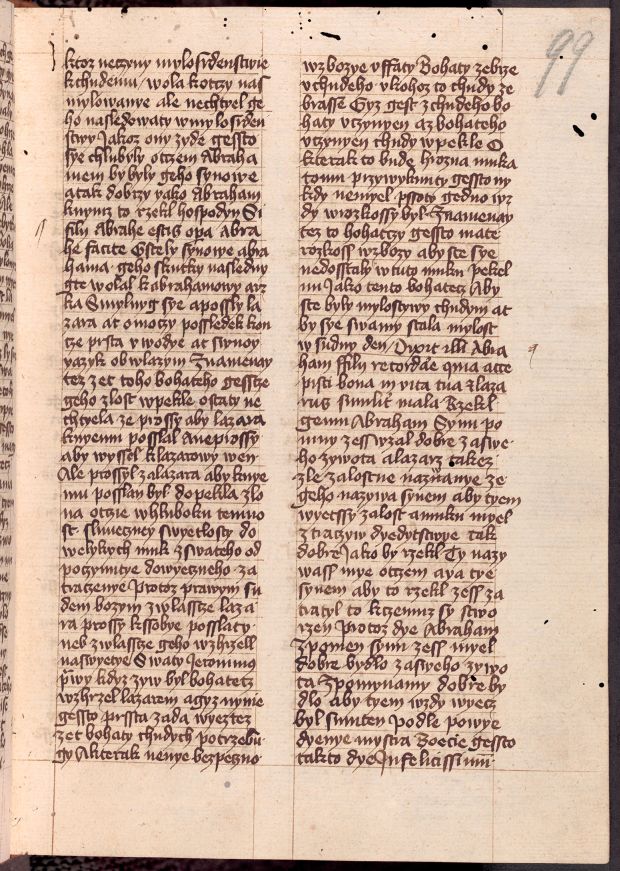 99
ktoz neczyny mylosrdenstwie
k chudemu / wola kotczy nas
mylowanye ale nechtyel ge
ho nasledowaty w mylosrden
stwy Jakoz ony zyde gessto
sye chlubyly otczem Abraha
mem by byly geho synowe
a tak dobrzy yako Abraham
knymz to rzekl hospodyn Si
filij Abrahe estis opa Abra
he facite Gstely synowe abra
hama geho skutky nasleduy
gte wolal k abrahamowy arz
ka Smylug sye a possly la
zara at omoczy possledek kon
cze prsta w wodye at stwoy
yazyk obwlazym Znamenay
tez zet toho bohateho gesscze
geho zlost w pekle ostaty ne
chtyela ze prossy aby lazara
knyemu posslal Aneprossy
aby wyssel k lazarowy wen
Ale prossyl z lazara aby knye
mu posslan byl do pekla zlo
na otcze whluboku temno
st sluneczney swyetlosty do
welykych muk z swateho od
poczynutye dowyeczneho za
traczenye Protoz prawym su
dem bozym zwlasscze laza
ra prossy k ssobye posslaty
neb zwlasscze geho wzhrzell
na swyetye Swaty Jeronimus
prwy kdyz zyw byl bohatecz
wzhrzel lazarem a gyz nynie
gessto prssta zada wyeztez
zet bohaty chudych potrzebu
gy Akterak nenye bezpeczno
w zbozye uffaty Bohaty zebrze
u chudeho / u kohoz to chudy ze
brasse Gyz gest z chudeho bo
haty uczynyen a z bohateho
uczynyen chudy w pekle O
kterak to bude hrozna muka
tomu przywyknuty gessto ny
kdy nemyel pssoty gedno wz
dy w rozkossy byl Znamenay
tez to bohatczy gessto mate
rozkoss w zbozy aby ste sye
nedosstaly w tuto muku pekel
nu Jako tento bohatecz Aby
ste byly mylostywy chudym at
by sye s wamy stala mylost
w sudny den / Dixit illi Abra
ham ffili recordare quia acce
pisti bona in vita tua & laza
rus similiter mala Rzekl
gemu Abraham Synu po
mny zess wzal dobre za swe
ho zywota a lazarz takez
zle zalostne naziwanye ze
geho nazywa synem aby tyem
wyetssy zalost a muku myel
ztratyw dyedytstwye tak
dobre Jako by rzekl Ty nazy
wass mye otczem a ya tye
synem aby to rzekl zess za
tratyl to k czemuz sy stwo
rzen Protoz dye Abraham
Zpomen synu zess myel
dobre bydlo za sweho zywo
ta Zpomynamy dobre by
dlo aby tyem wzdy wyecz
byl smuten Podle powye
dyenye mystra Boecie gessto
takto dye Infelicissimi